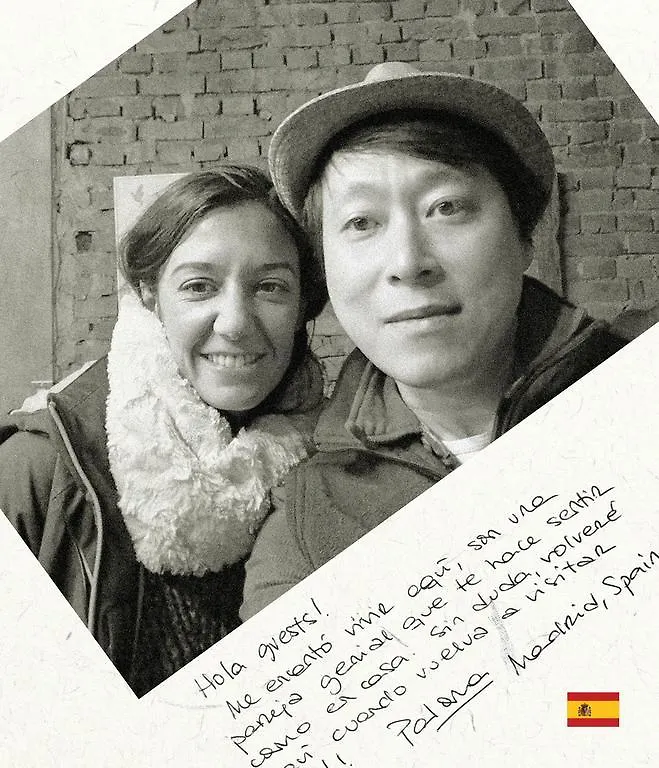 Hola guests!
Me encantó vivir aquí, son una
pareja genial que te hace sentir
como en casa! sin duda, volveré
aquí cuando vuelva a visitar
!!
Paloma Madrid, Spain